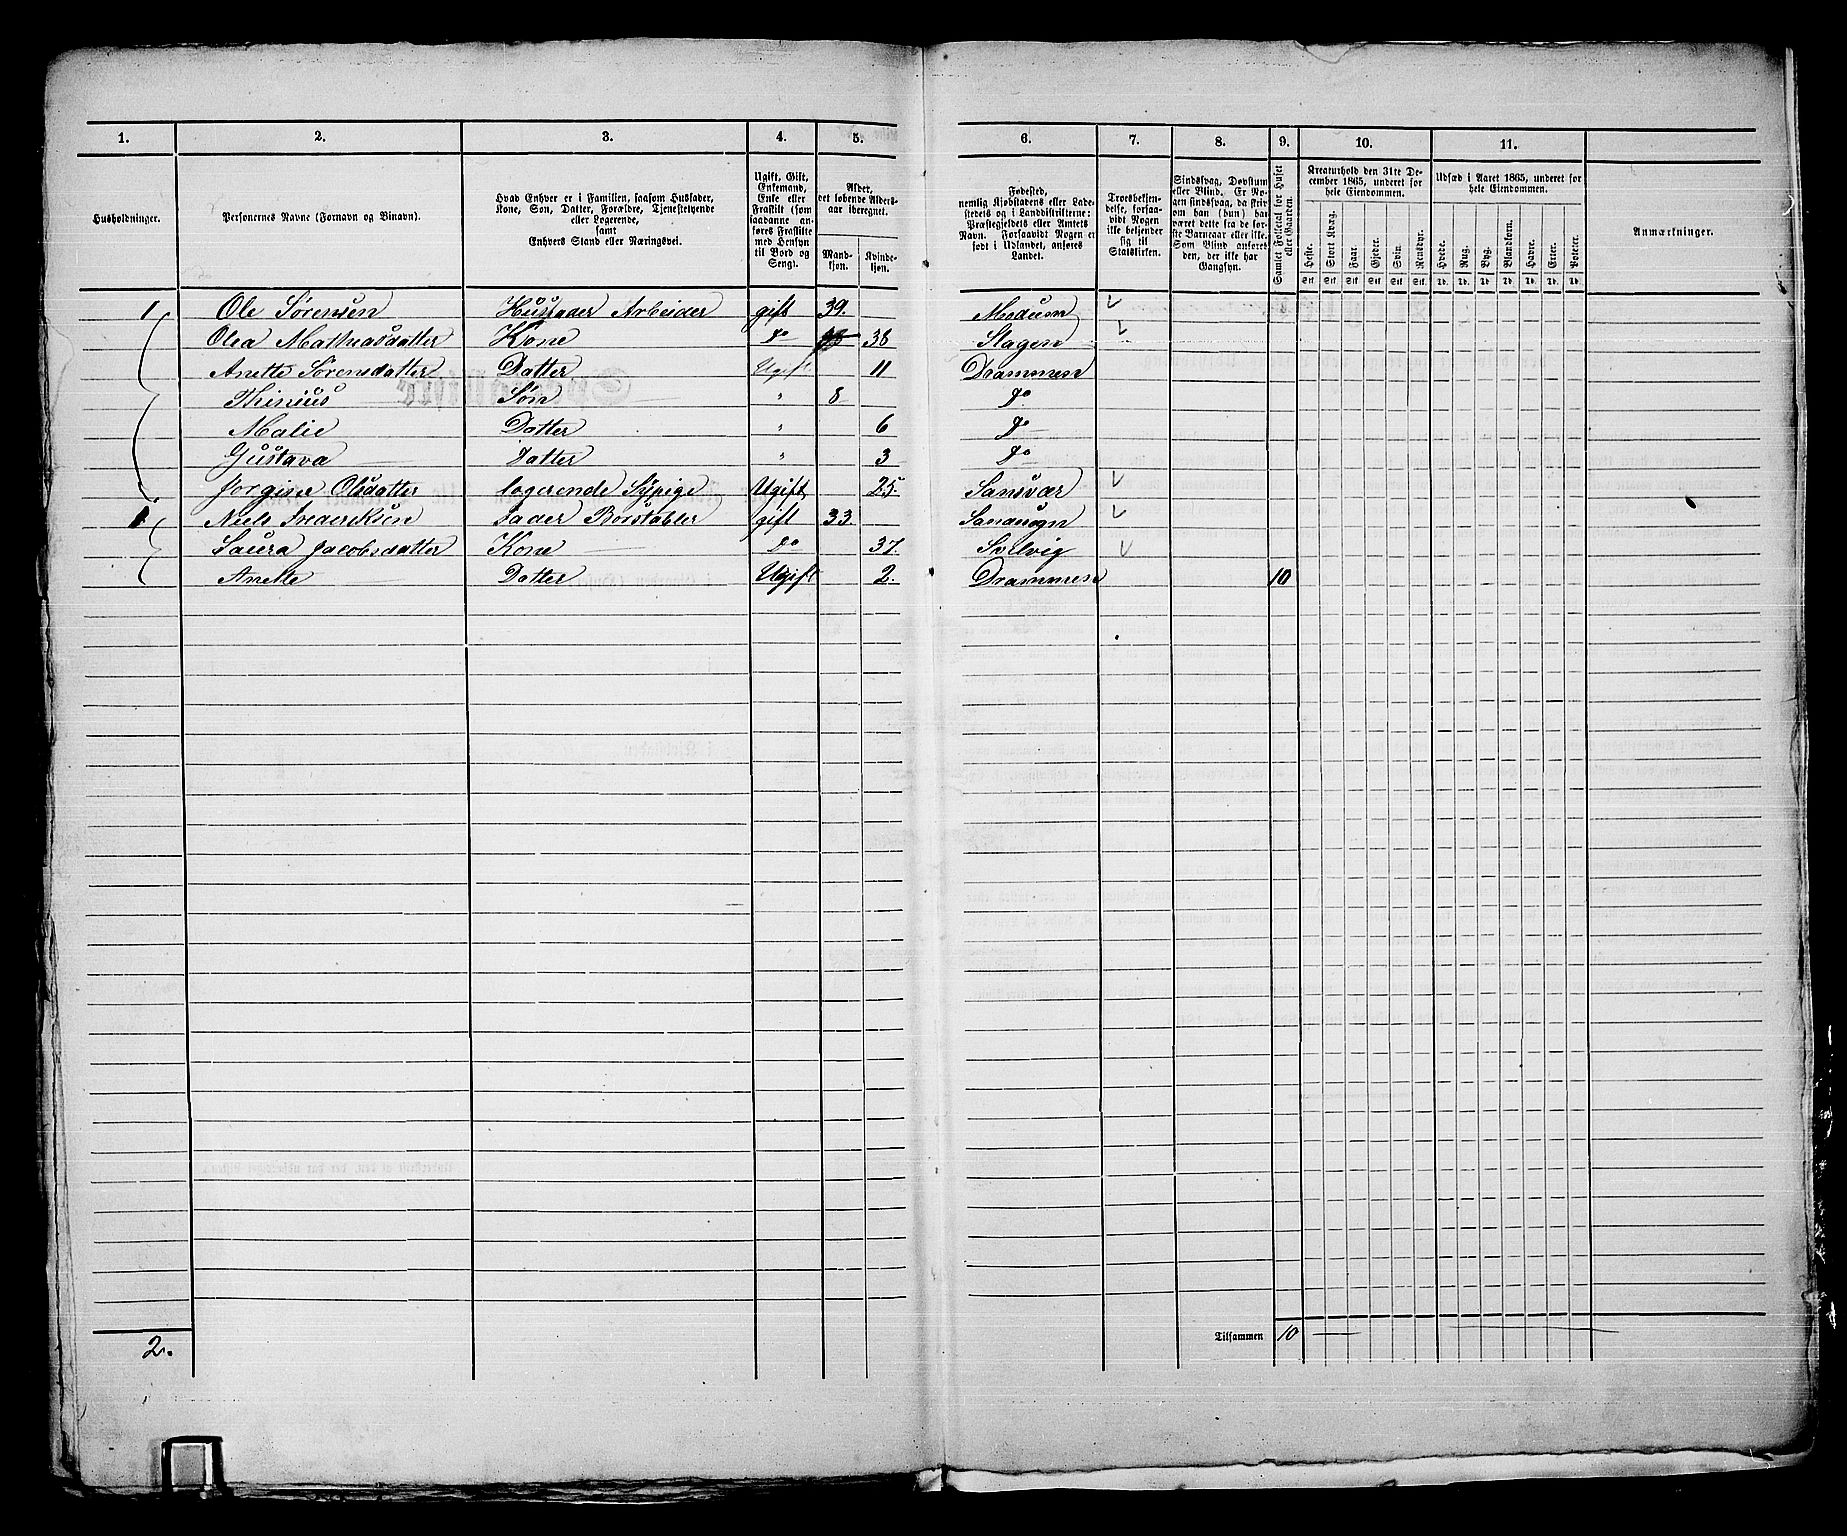 1. 2. 3. 4. 5. 6. 7. 8. 9. 10. 11.
Husholdninger.
Personernes Navne (Fornavn og Binavn).
Hvad Enhver er i Familien, saasom Husfader, Kone, Søn, Datter, Forældre, Tjenestetyende eller Logerende, samt Enhvers Stand eller Næringsvei.
Ugift, Gift, Enkemand, Enke eller Fraskilt (som saadanne anføres Fraskilte med Hensyn til Bord og Seng).
Alder, det løbende Aldersaar iberegnet.
Mandkjøn. Kvindekjøn.
Fødested, nemlig Kjøbstadens eller Ladestedets og i Landdistrikterne: Præstegjeldets eller Annexets Navn. Forsaavidt Nogen er født i Udlandet, anføres Landet.
Troesbekjendelse, forsaavidt Nogen ikke bekjender sig til Statskirken.
Sindssvag, Døvstum eller Blind. Er Nogen sindssvag, da skrives om han (hun) har været dette fra de første Barneaar eller ikke. Som Blind anføres den, der ikke har Gangsyn.
Samlet Folketal for Huset eller Gaarden.
Kreaturhold den 31te December 1865, underet for hele Eiendommen.
Heste. Stort Kvæg. Faar. Gjeder. Svin. Rensdyr.
Stk. Stk. Stk. Stk. Stk. Stk.
Udsæd i Aaret 1865, underet for hele Eiendommen.
Hvede. Rug. Byg. Blandkorn. Havre. Erter. Poteter.
Td. Td. Td. Td. Td. Td. Td.
Anmærkninger.
1 Ole Sørensen Husfader Arbeider gift 39. Modum
Olea Mathiasdatter Kone do 38 Slagen
Anette Sørensdatter Datter Ugift 11 Drammen
Thinius Søn " 8 do
Malie Datter " 6 do
Gustava Datter " 3 do
Jorgine Olsdatter logerende Sypige Ugift 25. Sansvær
1 Niels Frederiksen Fader gift 33. Sandsogn
Laura Jacobsdatter Kone do 37. Sollvig
Anette Datter Ugift 2. Drammen 10
2. Tilsammen 10